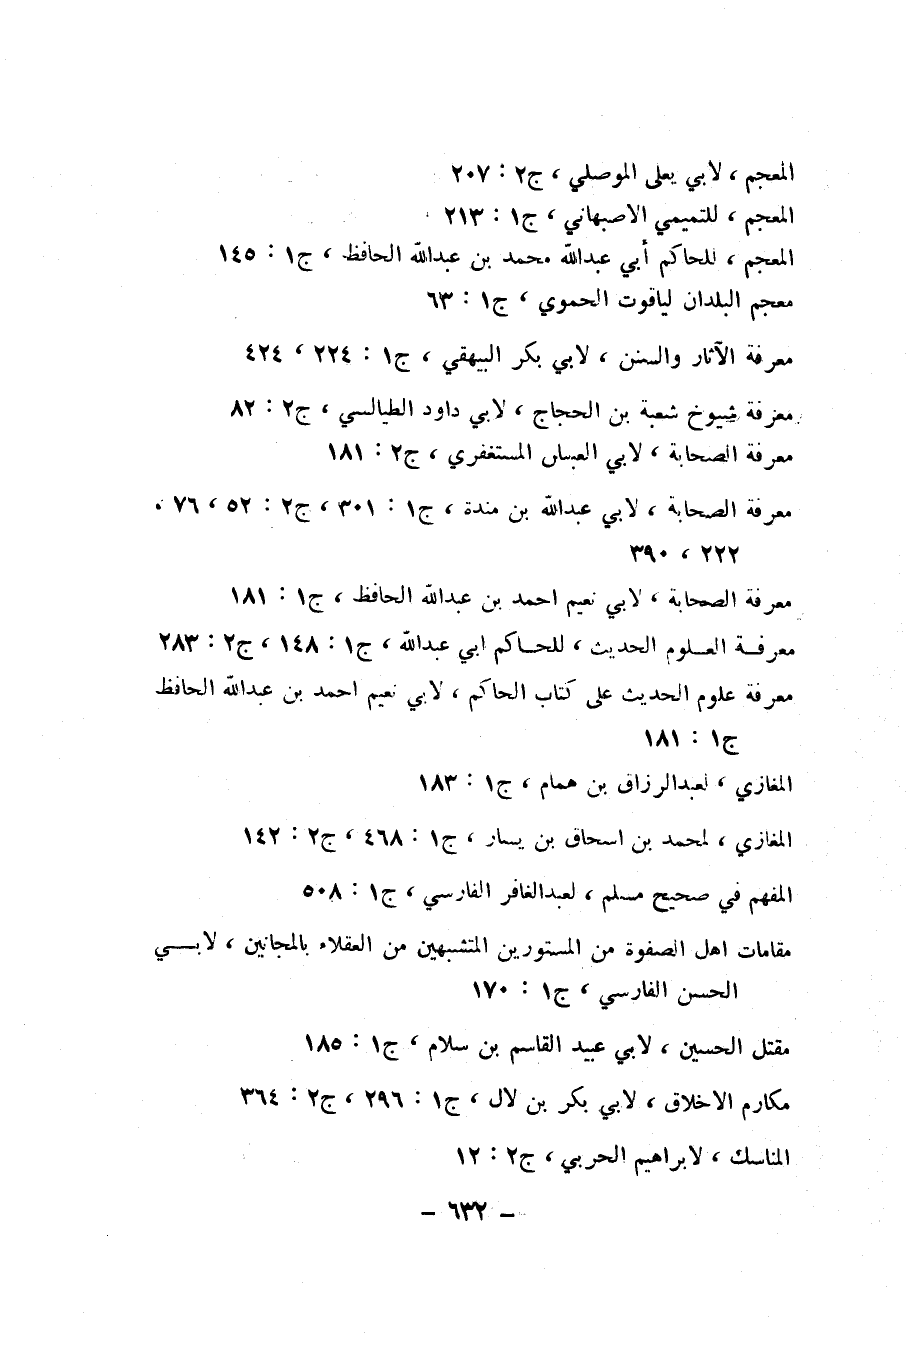 المعجم ، لابي يعلى الموصلي ، ج٢ : ٢٠٧
المعجم ، للتميمي الاصبهاني ، ج١ : ٢١٣
المعجم ، للحاكم أبي عبدالله محمد بن عبدالله الحافظ ، ج١ : ١٤٥
معجم البلدان لياقوت الحموي ، ج١ : ٦٣
معرفة الآثار والسنن ، لابي بكر البيهقي ، ج١ : ٢٢٤ ، ٤٢٤
معرفة شيوخ شعبة بن الحجاج ، لابي داود الطيالسي ، ج٢ : ٨٢
معرفة الصحابة ، لابي العباس المستغفري ، ج٢ : ١٨١
معرفة الصحابة ، لابي عبدالله بن مندة ، ج١ : ٣٠١ ، ج٢ : ٥٢ ، ٧٦ ،
٢٢٢ ، ٣٩٠
معرفة الصحابة ، لابي نعيم احمد بن عبدالله الحافظ ، ج١ : ١٨١
معرفــة العــلوم الحديث ، للحــاكم ابي عبدالله ، ج١ : ١٤٨ ، ج٢ : ٢٨٣
معرفة علوم الحديث على كتاب الحاكم ، لابي نعيم احمد بن عبدالله الحافظ
ج١ : ١٨١
المغازي ، لعبدالرزاق بن همام ، ج١ : ١٨٣
المغازي ، لمحمد بن اسحاق بن يسار ، ج١ : ٤٦٨ ، ج٢ : ١٤٢
المفهم في صحيح مسلم ، لعبدالغافر الفارسي ، ج١ : ٥٠٨
مقامات اهل الصفوة من المستورين المتشبهين من العقلاء بالمجانين ، لابــي
الحسن الفارسي ، ج١ : ١٧٠
مقتل الحسين ، لابي عبيد القاسم بن سلام ، ج١ : ١٨٥
مكارم الاخلاق ، لابي بكر بن لال ، ج١ : ٢٩٦ ، ج٢ : ٣٦٤
المناسك ، لابراهيم الحربي ، ج٢ : ١٢
– ٦٣٢ –